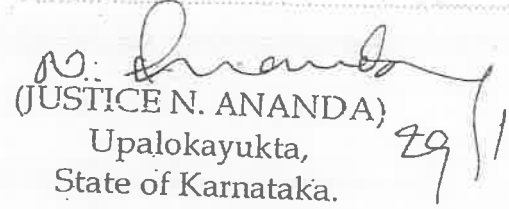 N. Ananda
(JUSTICE N. ANANDA)
Upalokayukta,
29/1
State of Karnataka.